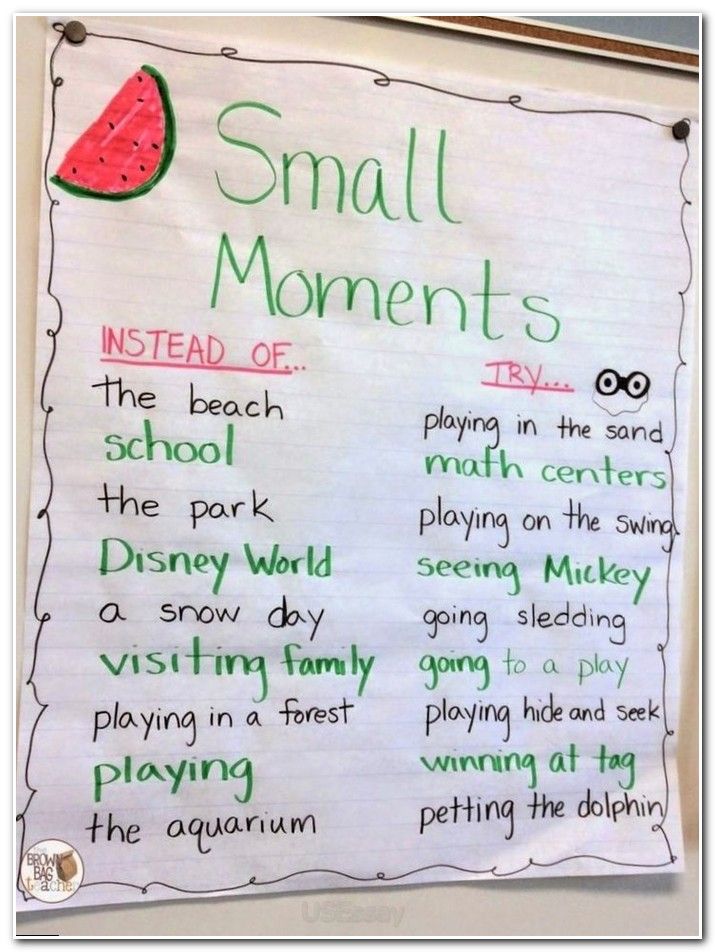 Small
Moments
INSTEAD OF... TRY...
the beach playing in the sand
school math centers
the park playing on the swing
Disney World seeing Mickey
a snow day going sledding
visiting family going to a play
playing in a forest playing hide and seek
playing winning at tag
the aquarium petting the dolphin
the
BROWN
BAG
teacher
USEssay